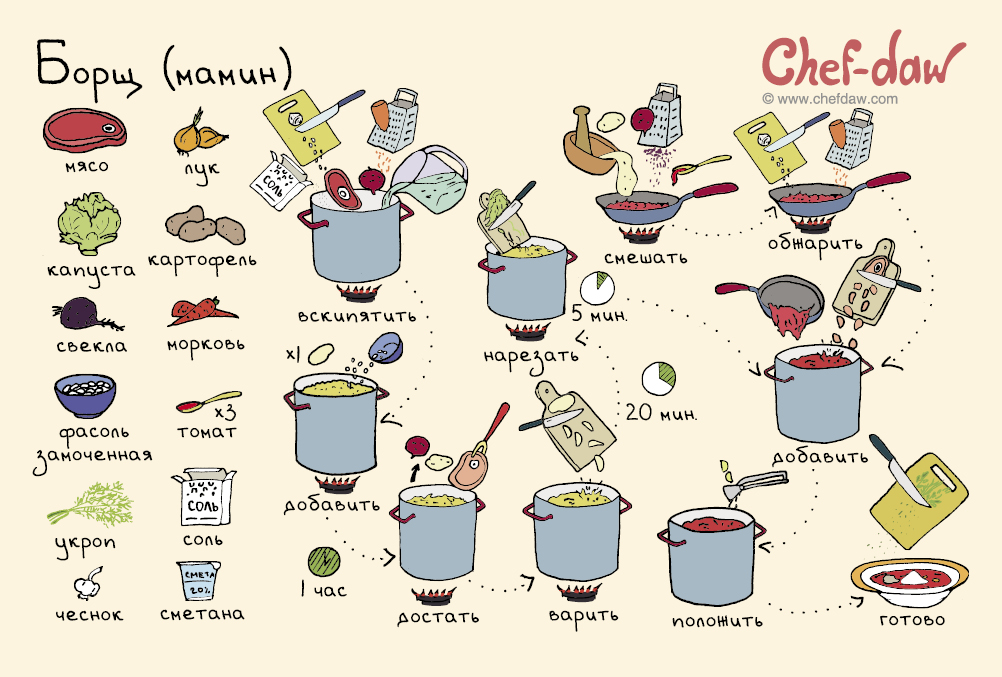 Борщ (мамин)
Chef-daw
© www.chefdaw.com
мясо
лук
капуста
картофель
свекла
морковь
фасоль
замоченная
x3
томат
укроп
СОЛЬ
соль
чеснок
СМЕТА
20%
сметана
СОЛЬ
вскипятить
x1
добавить
1 час
достать
варить
20 мин.
нарезать
5 мин.
смешать
обжарить
добавить
положить
готово